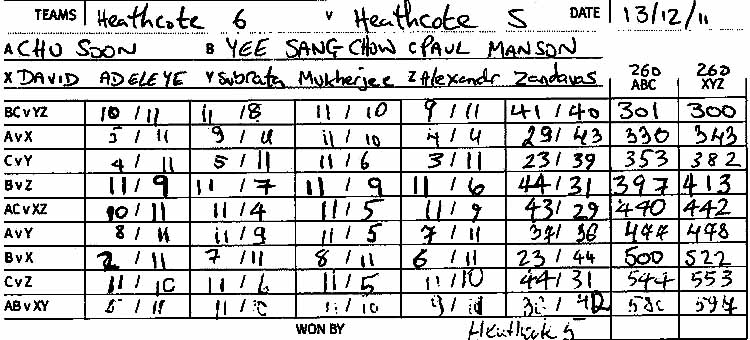 TEAMS Heathcote 6 V Heathcote 5 DATE 13/12/11
A CHU SOON B YEE SANG CHOW C PAUL MANSON
X DAVID ADELEYE Y Subrata Mukherjee Z Alexandr Zandavas 260 ABC 260 XYZ
BCvYZ 10 / 11 11 / 8 11 / 10 9 / 11 41 / 40 301 300
AvX 5 / 11 9 / 11 11 / 10 4 / 4 29 / 43 330 343
CvY 4 / 11 5 / 11 11 / 6 3 / 11 23 / 39 353 382
BvZ 11 / 9 11 / 7 11 / 9 11 / 6 44 / 31 397 413
ACvXZ 10 / 11 11 / 4 11 / 5 11 / 9 43 / 29 440 442
AvY 8 / 11 11 / 9 11 / 5 7 / 11 37 / 36 477 478
BvX 2 / 11 7 / 11 8 / 11 6 / 11 23 / 44 500 522
CvZ 11 / 10 11 / 6 11 / 5 11 / 10 44 / 31 544 553
ABvXY / 11 11 / 11 / 10 / / 42 594
WON BY Heathcote 5